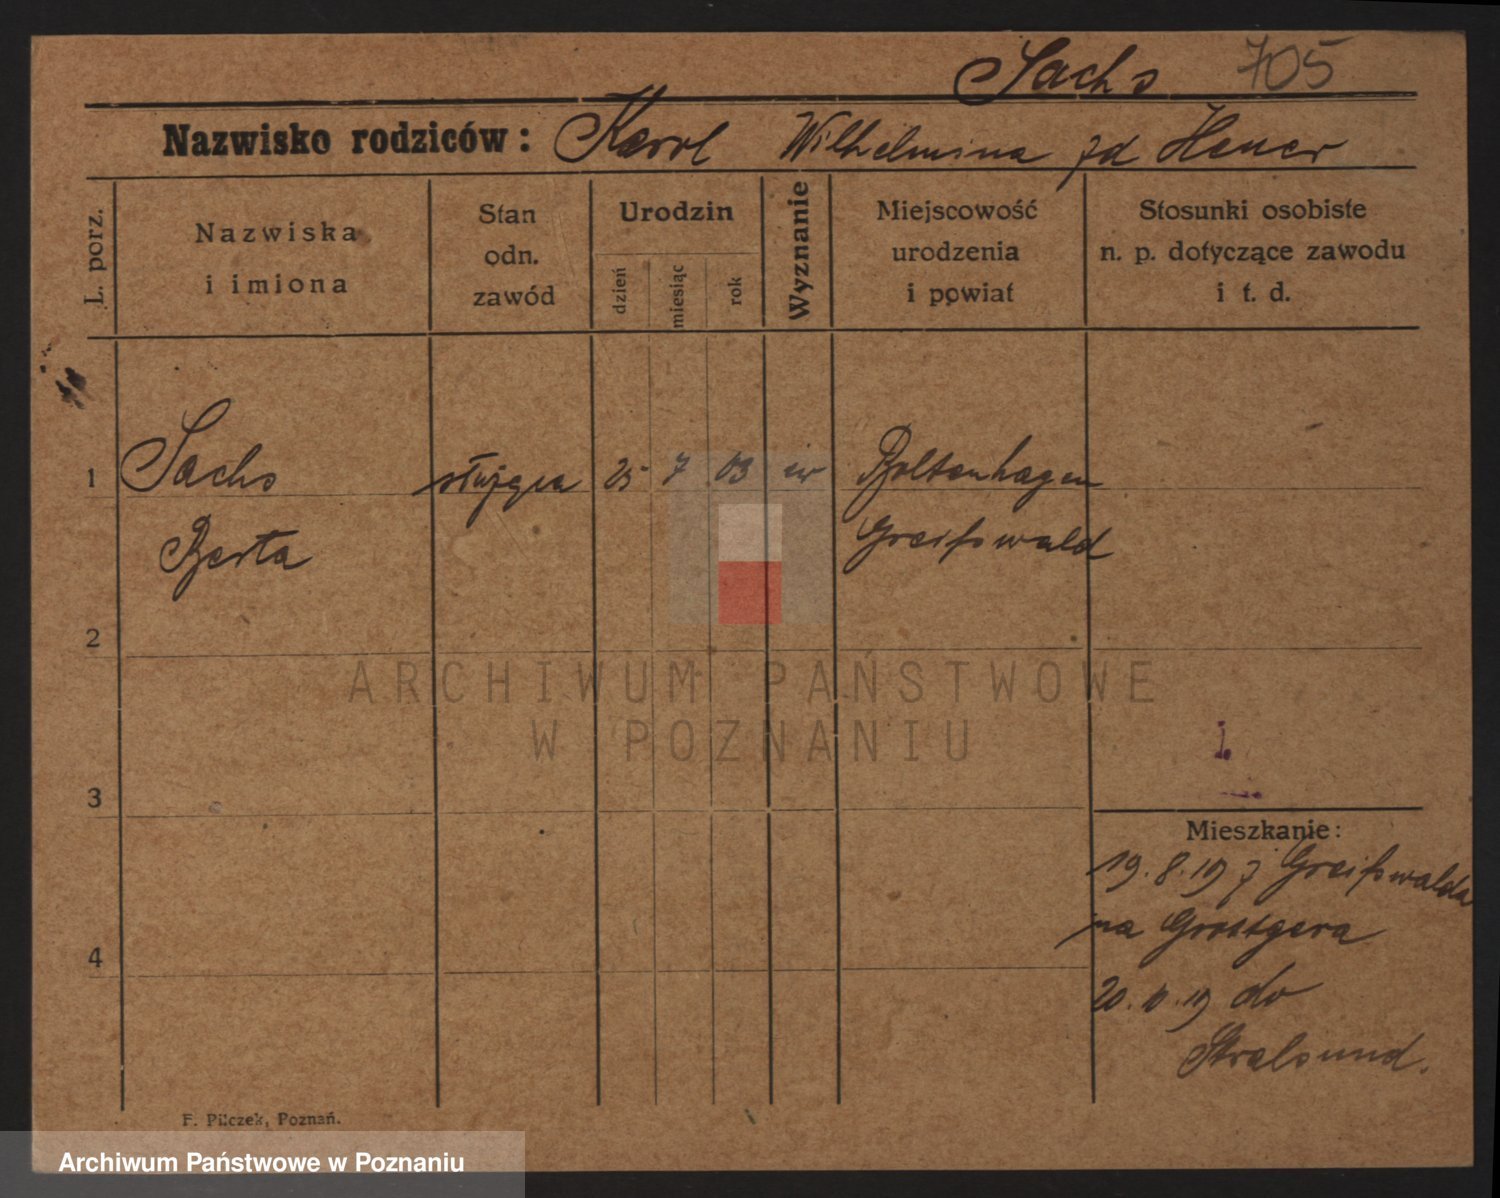 Sachs 705
Nazwisko rodziców: Karol Wilhelmina zd Heuer
L. porz.
Nazwiska
i imiona
Stan
odn.
zawód
Urodzin
dzień
miesiąc
rok
Wyznanie
Miejscowość
urodzenia
i powiat
Stosunki osobiste
n. p. dotyczące zawodu
i t. d.
1 Sachs służąca 25 7 03 ew Boltenhagen
Berta Greifswald
2
3
4
Mieszkanie:
19.8.19 z Greifswalda
na
20. 10. 19 do
Stralsund.
F. Pilczek, Poznań.
ARCHIWUM PAŃSTWOWE
W POZNANIU
Archiwum Państwowe w Poznaniu